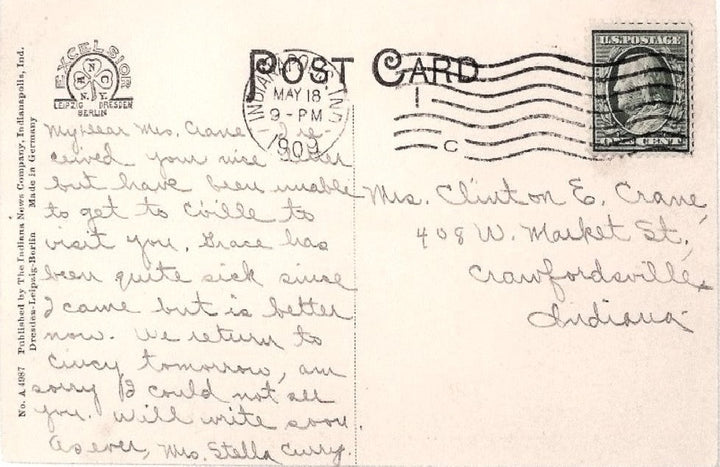 POST CARD
EXCELSIOR
A N C
N.Y.
LEIPZIG DRESDEN
BERLIN
INDIANAPOLIS, IND.
MAY 18
9 - PM
1909
1
C
U.S. POSTAGE
ONE CENT
No. A 4987 Published by The Indiana News Company, Indianapolis, Ind.
Dresden-Leipzig-Berlin Made in Germany
My dear Mrs. Crane I re-
ceived your nice letter
but have been unable
to get to C'ville to
visit you. Grace has
been quite sick since
I came but is better
now. We return to
Cincy tomorrow, am
sorry I could not see
you. Will write soon
As ever, Mrs. Stella Curry.
Mrs. Clinton E. Crane
408 W. Market St.,
Crawfordsville,
Indiana